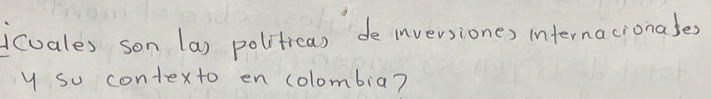 ¿cuales son las politicas de inversiones internacionales
y su contexto en colombia?